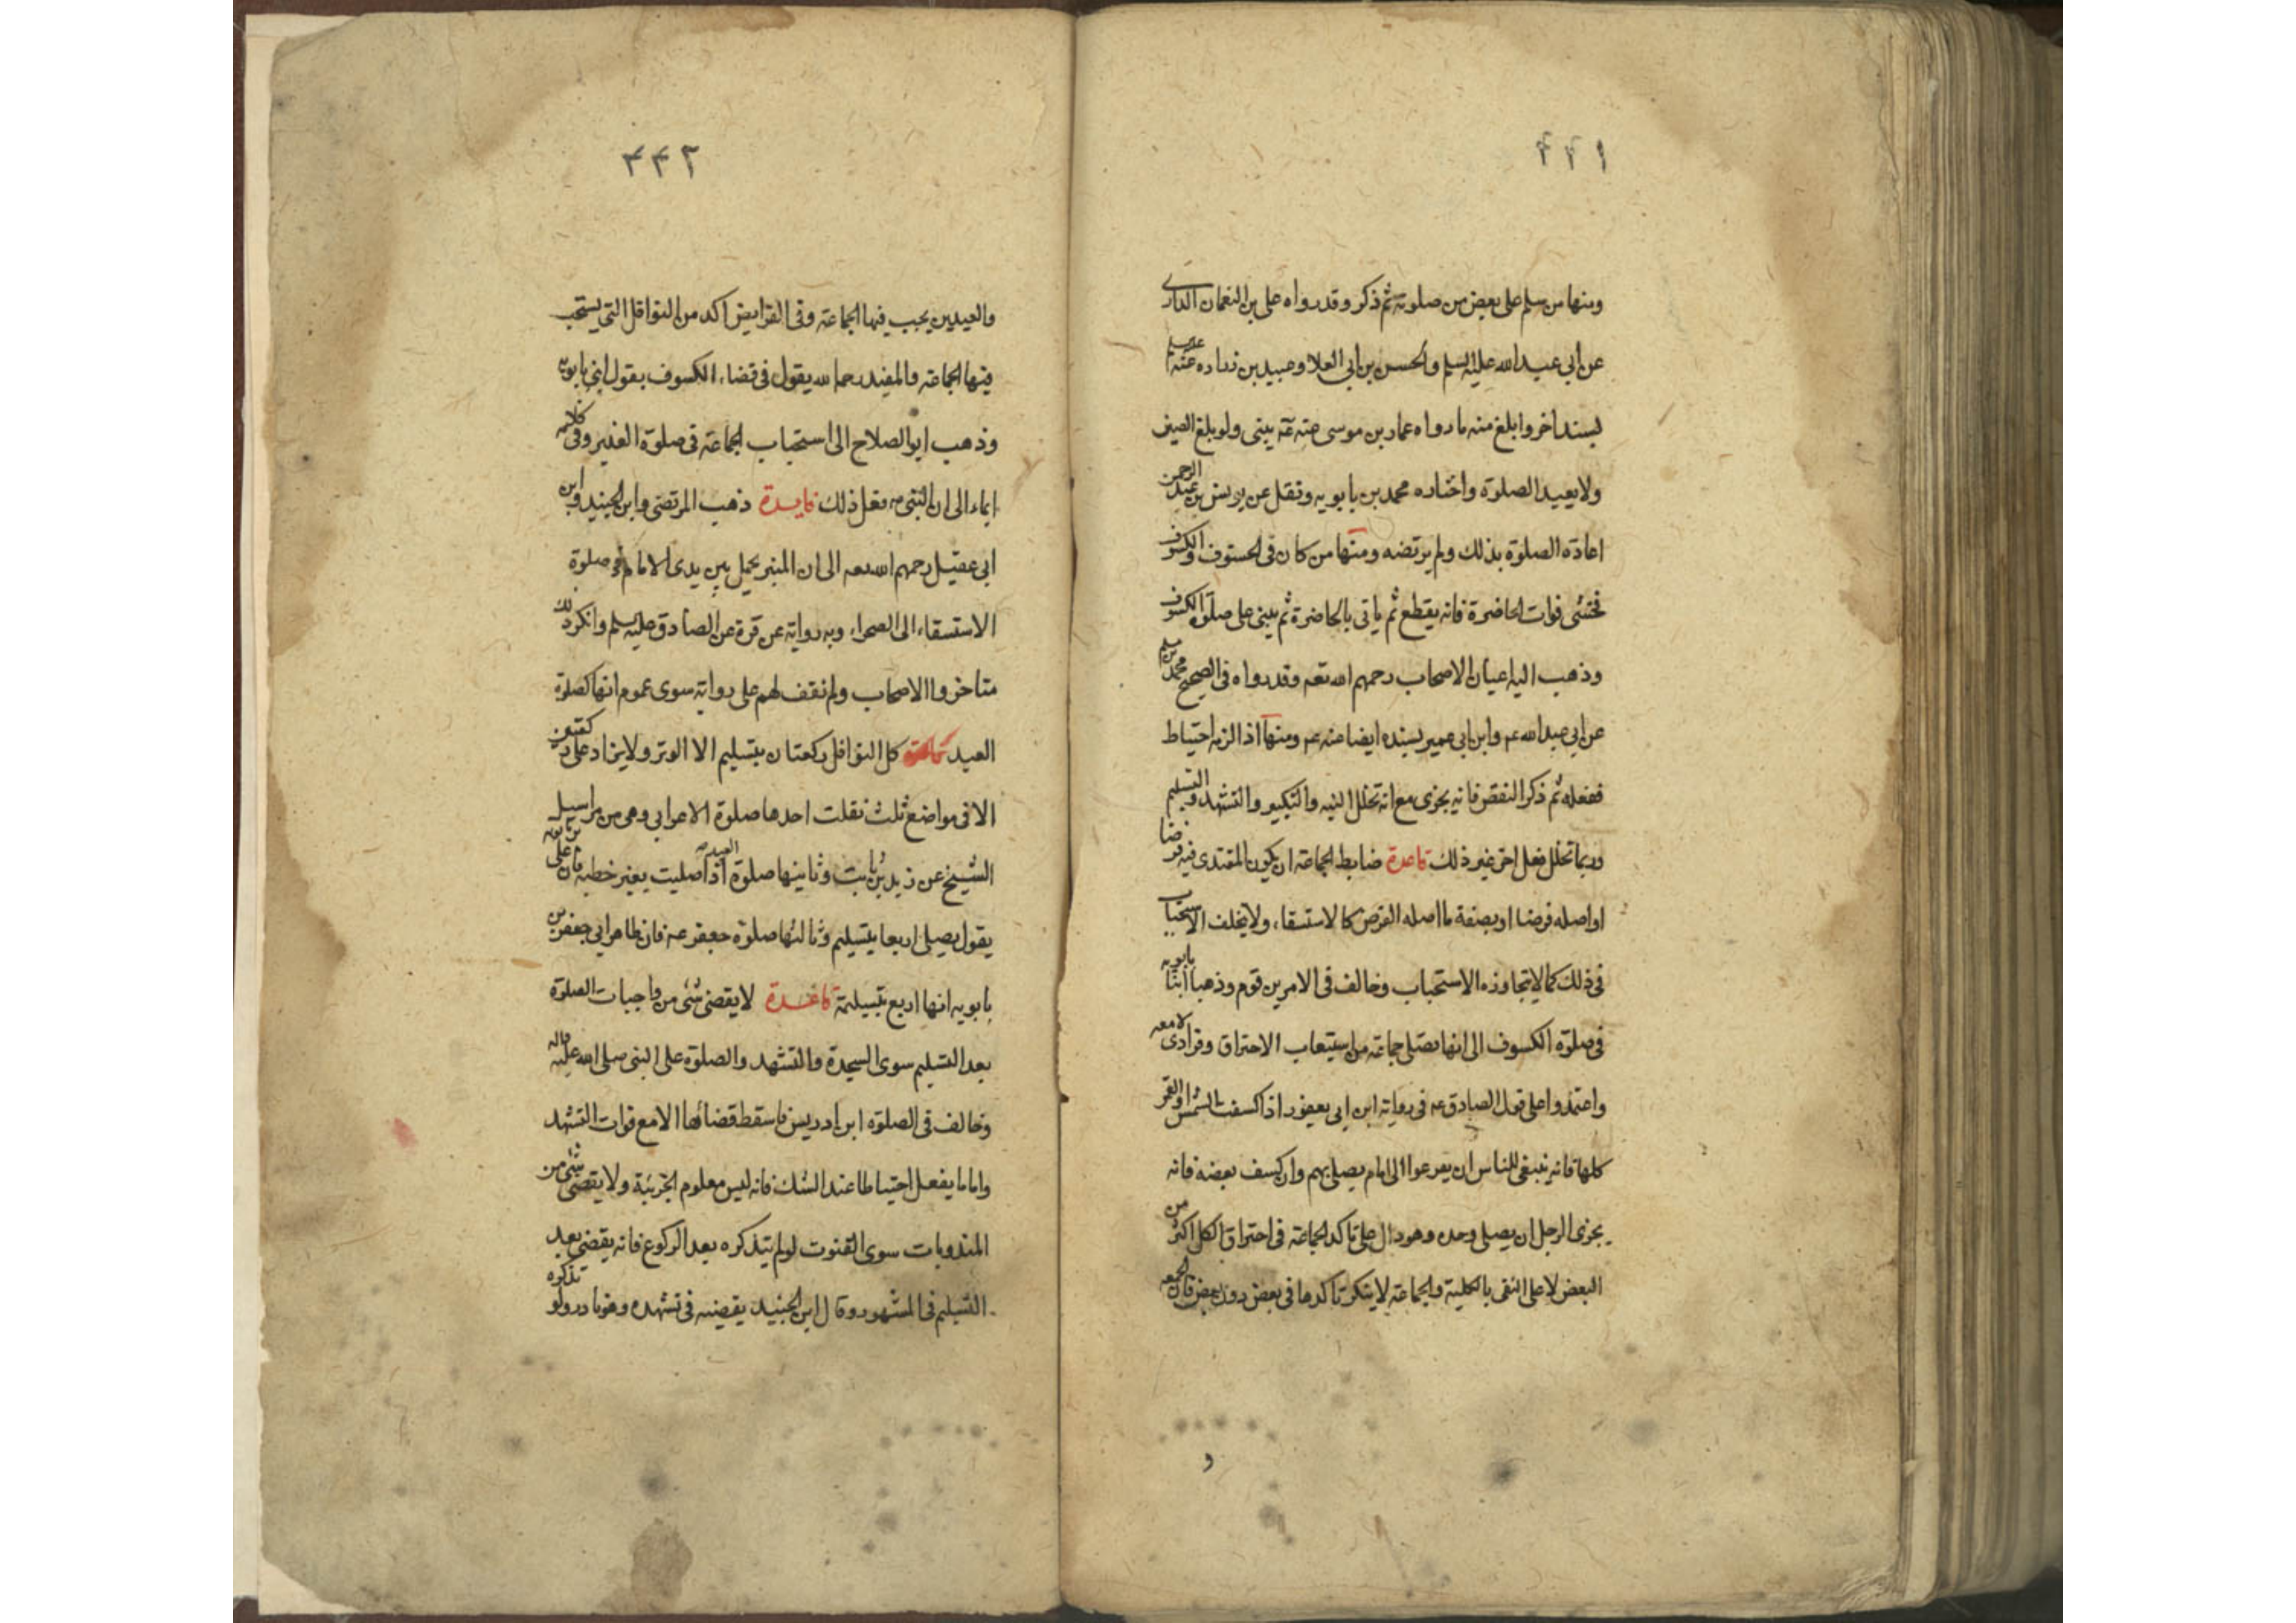 ٤٤١
ومنها من سلم على بعض من صلوته ثم ذكر وقد رواه على بن النعمان الداری
عن ابی عبد الله عليه السلم والحسن بن ابی العلا وعبيد بن زراره عنه عليه السلم
بسند اخر وابلغ منه ما رواه عمار بن موسى عنه عه يبنى ولو بلغ الصين
ولا يعيد الصلوة واختاره محمد بن بابويه ونقل عن يونس بن عبد الرحمن
اعادة الصلوة بذلك ولم يرتضه ومنها من كان فى الخسوف والكسوف
فخشى فوات الحاضرة فانه يقطع ثم ياتى بالحاضرة ثم يبنى على صلوة الكسوف
وذهب اليه اعيان الاصحاب رحمهم الله تعه وقد رواه فى الصحيح محمد بن مسلم
عن ابى عبد الله عه وابن ابى عمير بسنده ايضا عنه عه ومنها اذا لزمه احتياط
ففعله ثم ذكر النقص فانه يجزى مع انه تخلل النيه والتكبير والتشهد والتسليم
وربما تخلل فعل اخر غير ذلك قاعدة ضابط الجماعة ان يكون المقتدى فيه فرضا
او اصله فرضا او بصفة ما اصله الفرض كالاستسقاء ولا يخلف الاستحباب
فى ذلك كما لا يتجاوزه الاستحباب وخالف فى الامرين قوم وذهبا ابنا بابويه
فى صلوة الكسوف الى انها تصلى جماعة مع استيعاب الاحتراق وفرادى لا معه
واعتمدوا على قول الصادق عه فى رواية ابن ابى يعفور اذا كسفت الشمس او القمر
كلها فانه ينبغى للناس ان يفرعوا الى امام يصلى بهم وان كسف بعضه فانه
يجزى الرجل ان يصلى وحده وهو دال على تاكد الجماعة فى احتراق الكل اكثر من
البعض لا على النفى بالكلية والجماعة لا ينكر تاكدها فى بعض دون بعض فان الجمعه
و
٤٤٢
والعيدين يجب فيها الجماعة وفى الفرايض اكد من النوافل التى يستحب
فيها الجماعة والمفيد رحمه الله يقول فى قضاء الكسوف بقول ابنى بابويه
وذهب ابو الصلاح الى استحباب الجماعة فى صلوة الغدير وفى كلامه
ايماء الى ان النبى ص فعل ذلك فايدة ذهب المرتضى وابن الجنيد وابن
ابى عقيل رحمهم الله تعه الى ان المنبر يحمل بين يدى الامام فى صلوة
الاستسقاء الى الصحراء وبه رواية عن قرة عن الصادق عليه السلم وانكر ذلك
متاخروا الاصحاب ولم نقف لهم على رواية سوى عموم انها كصلوة
العيد قاعدة كل النوافل ركعتان بتسليم الا الوتر ولا يزاد على ركعتين
الا فى مواضع ثلث نقلت احدها صلوة الاعرابى وهى من مراسيل
الشيخ عن زيد بن ثابت وثانيها صلوة العيد اذا صليت بغير خطبه فان على بن بابويه
يقول يصلى اربعا بتسليم وثالثها صلوة جعفر عه فان ظاهر ابى جعفر بن
بابويه انها اربع بتسليمة قاعدة لا يقضى شئ من واجبات الصلوة
بعد التسليم سوى السجدة والتشهد والصلوة على النبى صلى الله عليه واله
وخالف فى الصلوة ابن ادريس فاسقط قضائها الا مع فوات التشهد
واما ما يفعل احتياطا عند الشك فانه ليس معلوم الجزئية ولا يقضى شئ من
المندوبات سوى القنوت لو لم يتذكره بعد الركوع فانه يقضى بعد
التسليم فى المشهور وقال ابن الجنيد يقضيه فى تشهده وهو نادر ولو تذكره